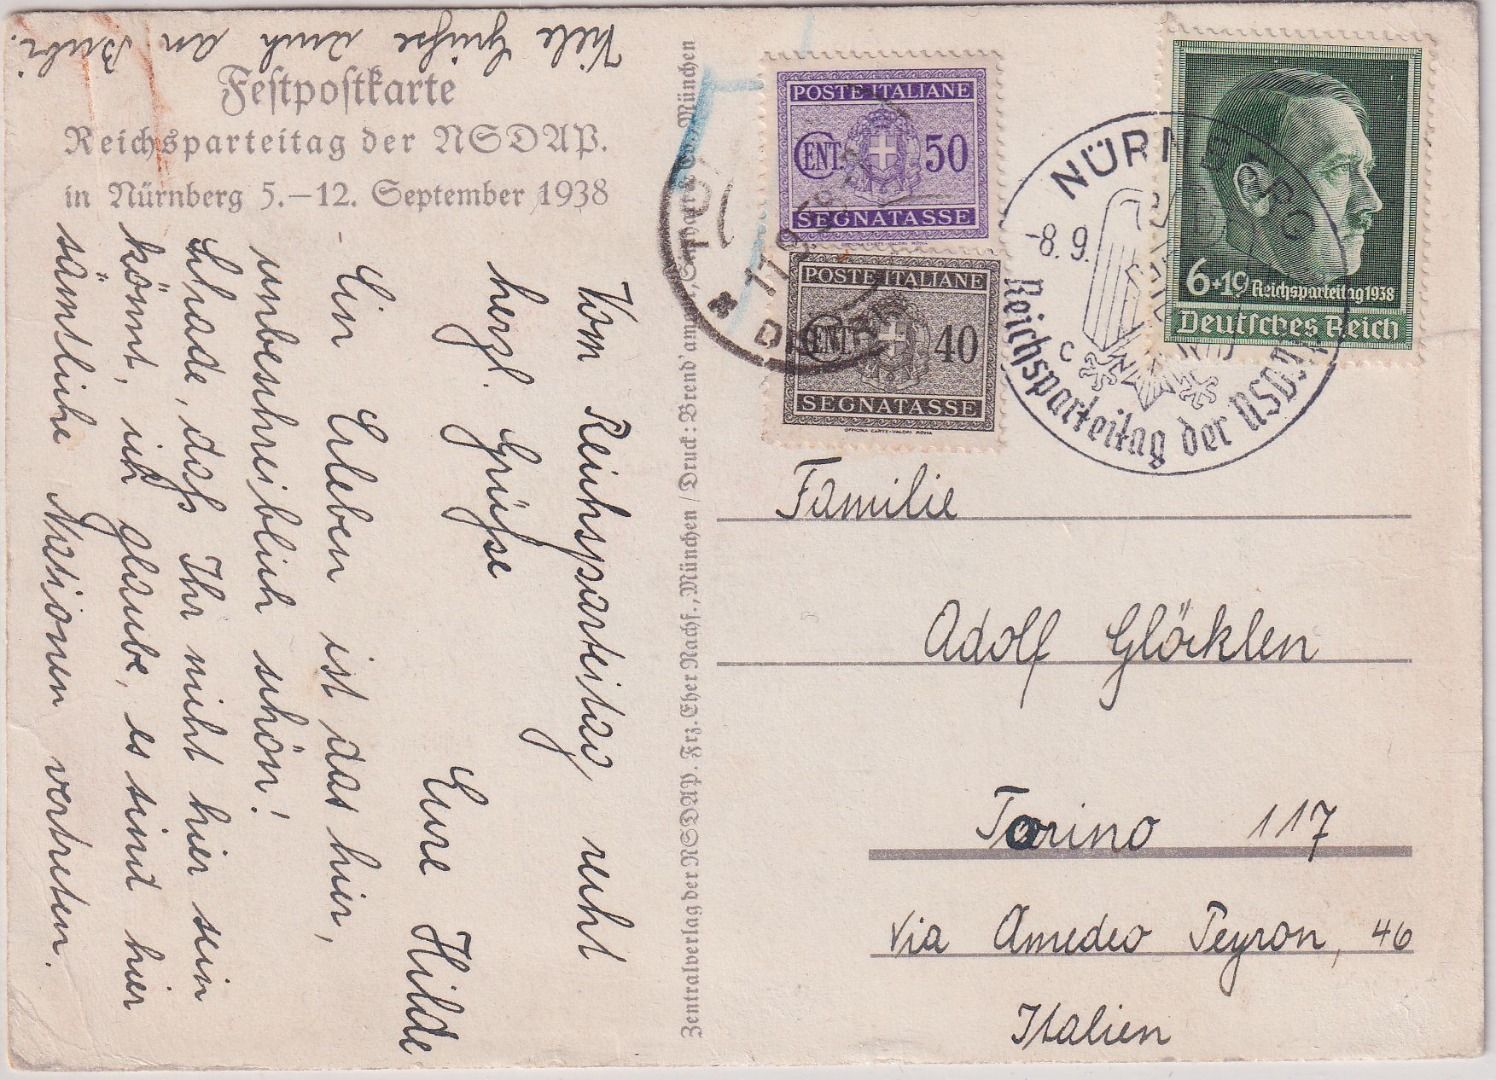 Viele Grüße auch an Bubi.
Festpostkarte
Reichsparteitag der NSDAP.
in Nürnberg 5.–12. September 1938
Vom Reichsparteitag recht
herzl. Grüße
Eure Hilde
Ein Erleben ist das hier,
unbeschreiblich schön!
Schade, daß Ihr nicht hier sein
könnt, ich glaube, es sind hier
sämtliche Nationen vertreten.
Zentralverlag der NSDAP. Frz. Eher Nachf., München / Druck: Brend'amour, Simhart & Co., München
POSTE ITALIANE
CENT. 50
SEGNATASSE
POSTE ITALIANE
CENT. 40
SEGNATASSE
OFFICINA CARTE-VALORI ROMA
17.9
NÜRNBERG
-8.9.
C
Reichsparteitag der NSDAP
6+19 Reichsparteitag 1938
Deutsches Reich
Familie
Adolf Glöcklen
Torino 117
Via Amedeo Peyron, 46
Italien